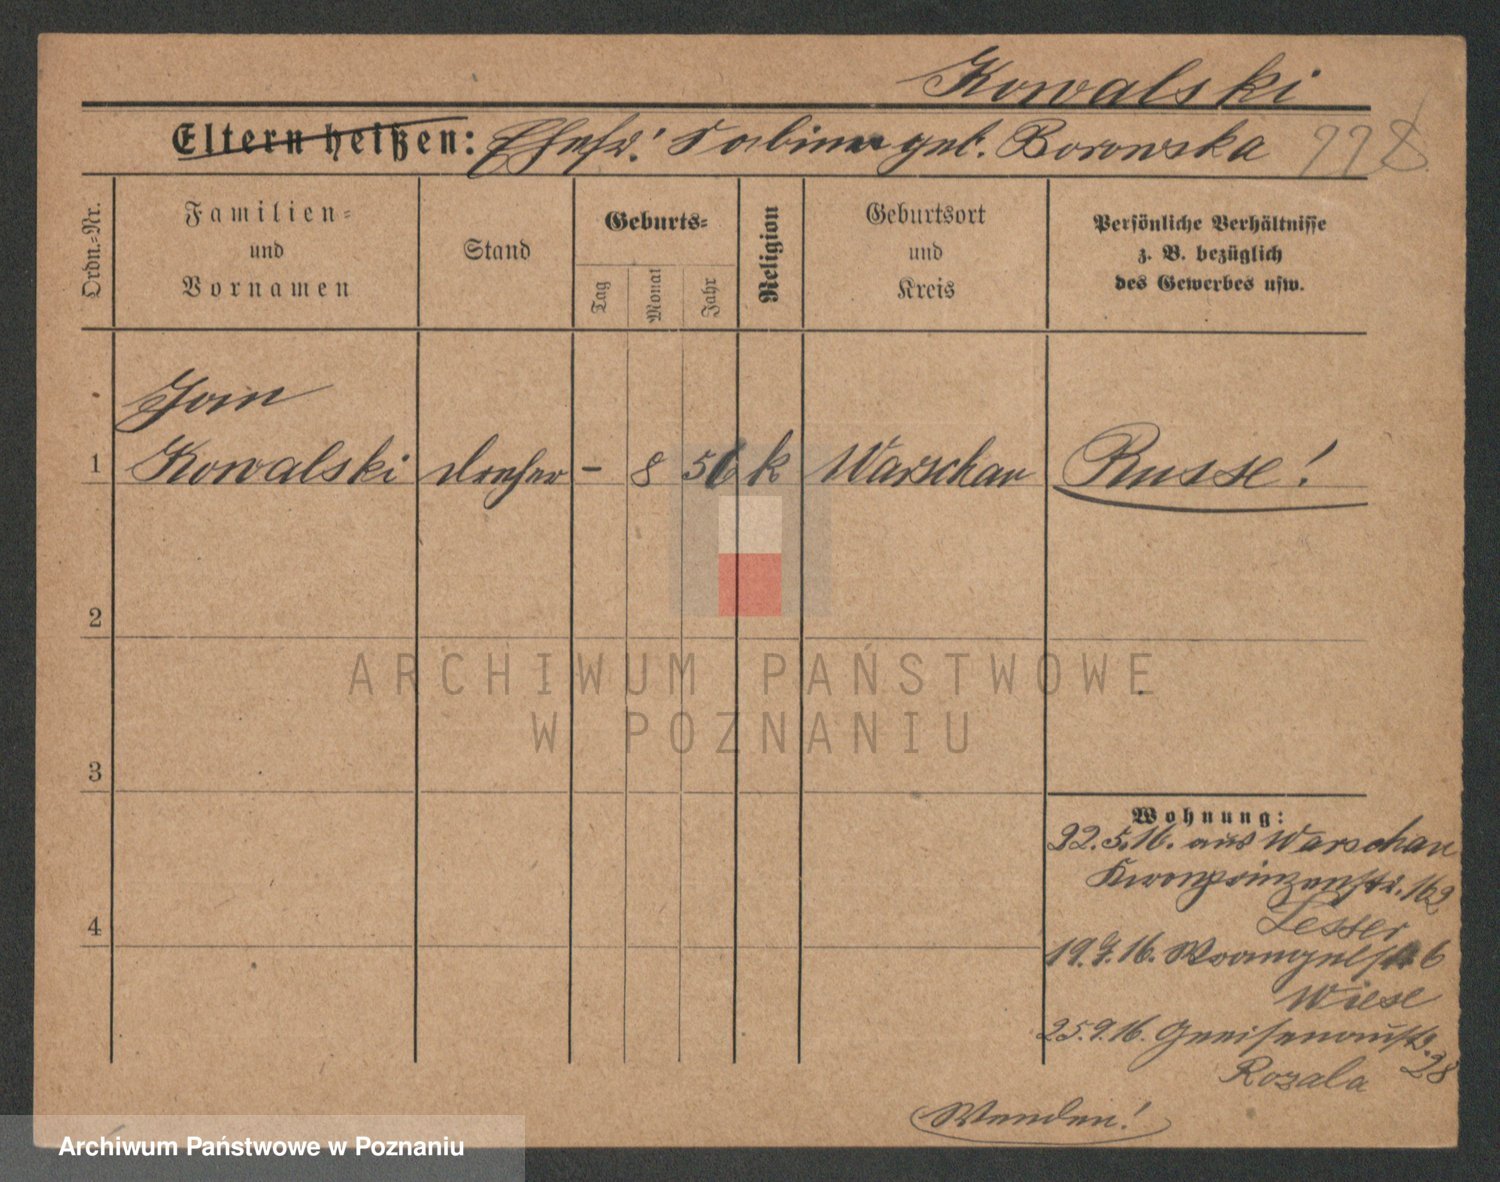 Kowalski
Eltern heißen: Ehefr.: Sabina geb. Borowska 228
Ordn.-Nr.
Familien-
und
Vornamen
Stand
Geburts-
Tag
Monat
Jahr
Religion
Geburtsort
und
Kreis
Persönliche Verhältnisse
z. B. bezüglich
des Gewerbes usw.
Jan
1 Kowalski Dreher – 8 56 k Warschau Russe!
2
3
4
Wohnung:
22.5.16. aus Warschau
Kronprinzenstr. 162
Lesser
19.7.16. Wrangelstr. 6
Wiese
25.9.16. Gneisenaustr. 28
Rozala
Wenden!
ARCHIWUM PAŃSTWOWE
W POZNANIU
Archiwum Państwowe w Poznaniu